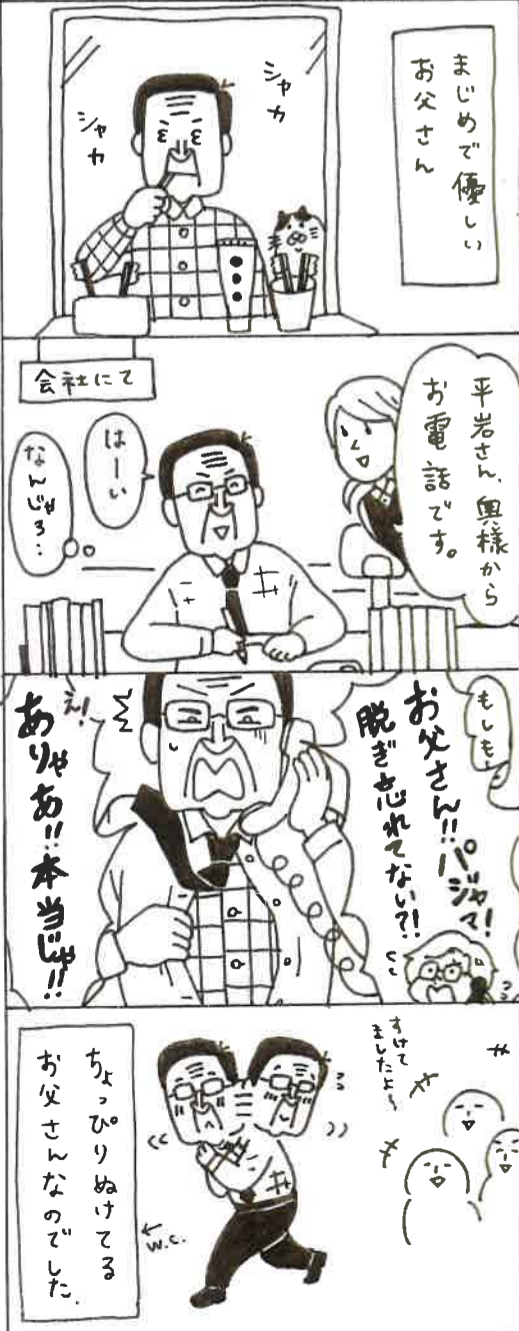 まじめで優しい
お父さん
シャカ
シャカ
会社にて
平岩さん、奥様から
お電話です。
はーい
なんじゃろ・・
もしも
お父さん!!パジャマ!
脱ぎ忘れてない?!
え!
ありゃあ!!本当じゃ!!
すけて
ましたよ〜
W.C.
ちょっぴりぬけてる
お父さんなのでした.